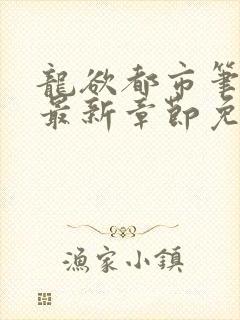 龍欲都市筆
最新章節免
漁家小鎮